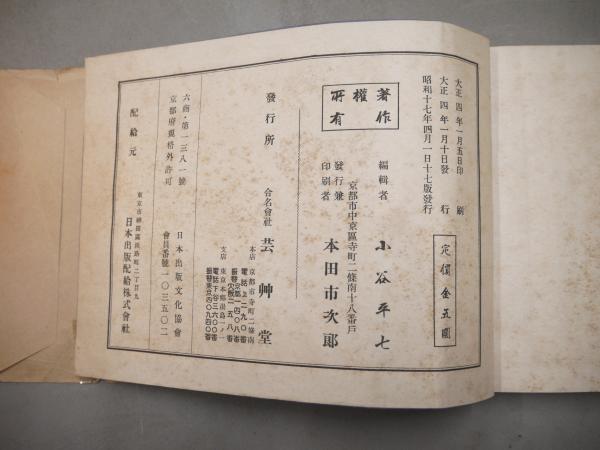 大正四年一月五日印刷
大正四年一月十日發行
昭和十七年四月一日十七版發行
定價金五圓
著作權所有
編輯者 小谷平七
京都市中京區寺町二條南十八番戶
發行兼印刷者 本田市次郎
發行所 合名會社 芸艸堂
本店 京都市寺町二條南
電話上二九〇番
振替京都一四〇八番
振替大阪二五八番
支店 東京本郷湯島一ノ一
電話下谷三六〇〇番
振替東京四〇九四〇番
六商・第一三八一號
京都府規格外許可
日本出版文化協會
會員番號一〇三五〇二
配給元
東京市神田區淡路町二丁目九
日本出版配給株式會社